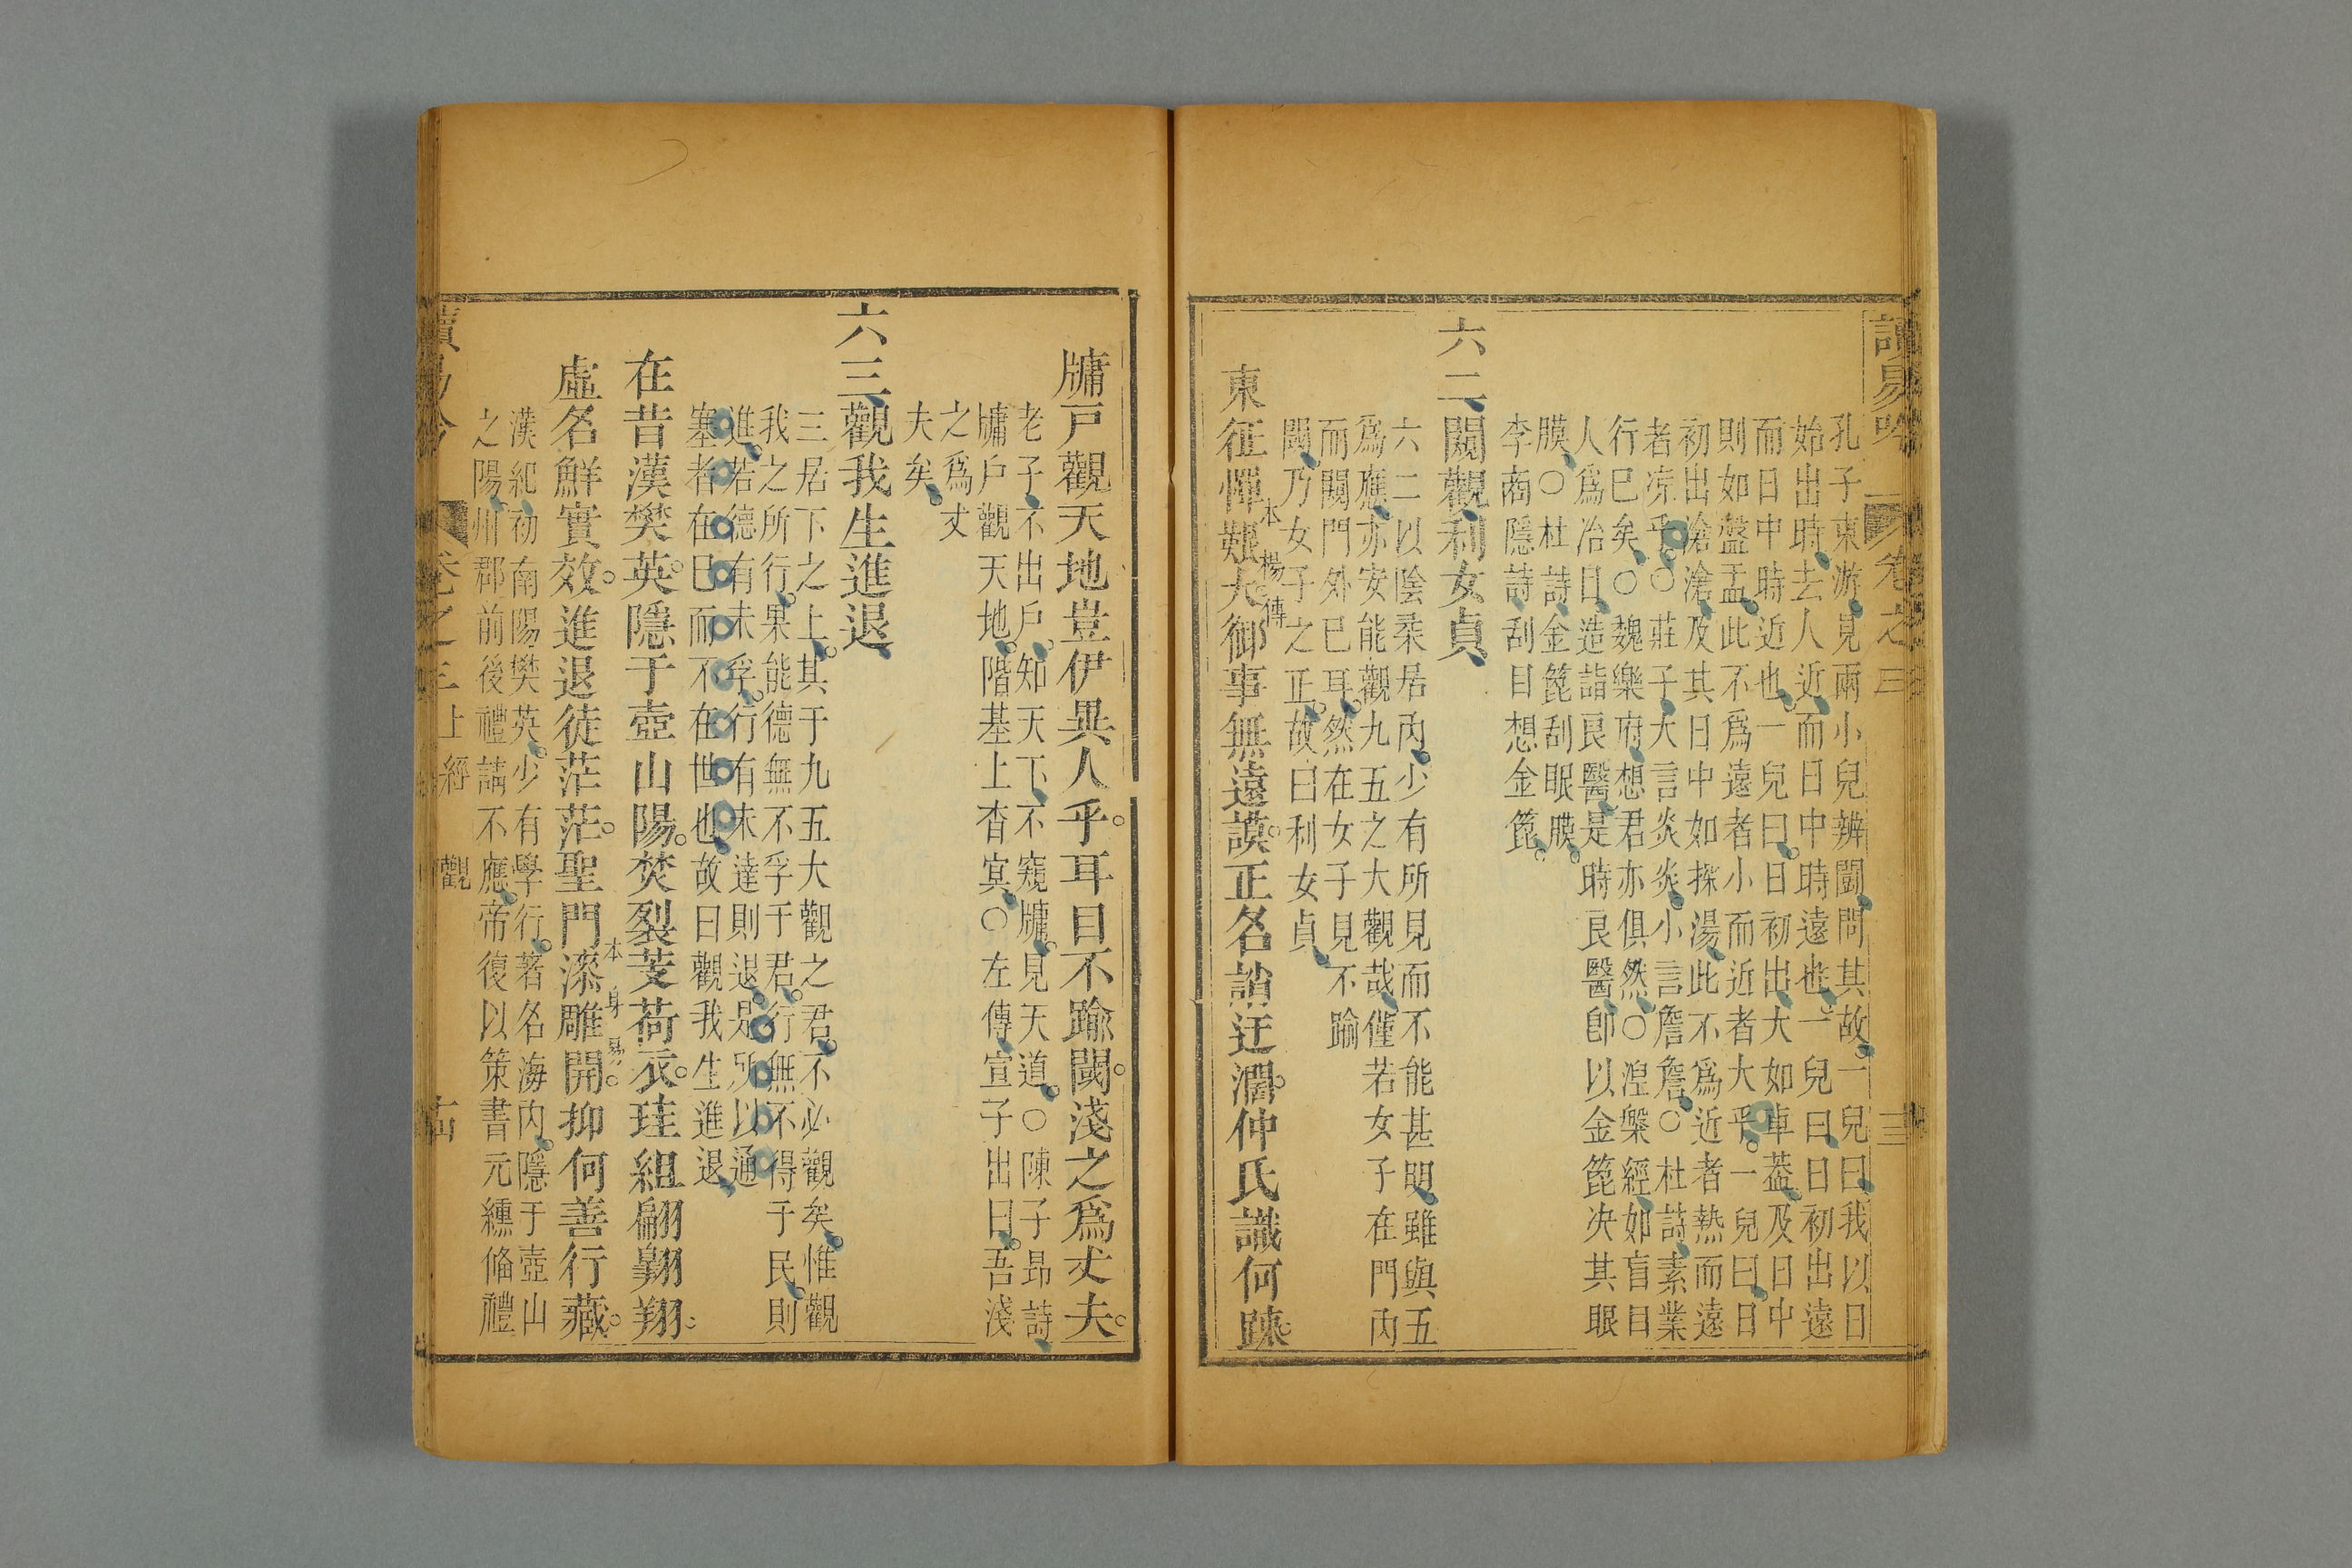 讀易吟 卷之三 三
孔子東游見兩小兒辨鬪問其故一兒曰我以日
始出時去人近而日中時遠也一兒曰日初出遠
而日中時近也一兒曰日初出大如車葢及日中
則如盤盂此不爲遠者小而近者大乎一兒曰日
初出滄滄及其日中如探湯此不爲近者熱而遠
者凉乎○莊子大言炎炎小言詹詹○杜詩素業
行巳矣○魏樂府想君亦俱然○湼槃經如盲目
人爲冶目造詣良醫是時良醫卽以金篦决其眼
膜○杜詩金篦刮眼膜
李商隱詩刮目想金篦
六二闚觀利女貞
六二以陰柔居內少有所見而不能甚明雖與五
爲應亦安能觀九五之大觀哉僅若女子在門內
而闚門外已耳然在女子見不踰
閾乃女子之正故曰利女貞
本楊傳
東征憚艱大御事無遠謨正名誚迂濶仲氏識何踈
牗戸觀天地豈伊異人乎耳目不踰閾淺之爲丈夫
老子不出戸知天下不窺牗見天道○陳子昂詩
牗戸觀天地階基上杳冥○左傳宣子出曰吾淺
之爲丈
夫矣
六三觀我生進退
三居下之上其于九五大觀之君不必觀矣惟觀
我之所行果能德無不孚于君行無不得于民則
進若德有未孚行有未達則退是所以通
塞者在巳而不在世也故曰觀我生進退
在昔漢樊英隱于壺山陽焚裂芰荷衣珪組翩翺翔
本身易
虛名鮮實效進退徒茫茫聖門漆雕開抑何善行藏
漢紀初南陽樊英少有學行著名海內隱于壺山
之陽州郡前後禮請不應帝復以策書元纁俻禮
讀易吟 卷之三 上經 觀 古